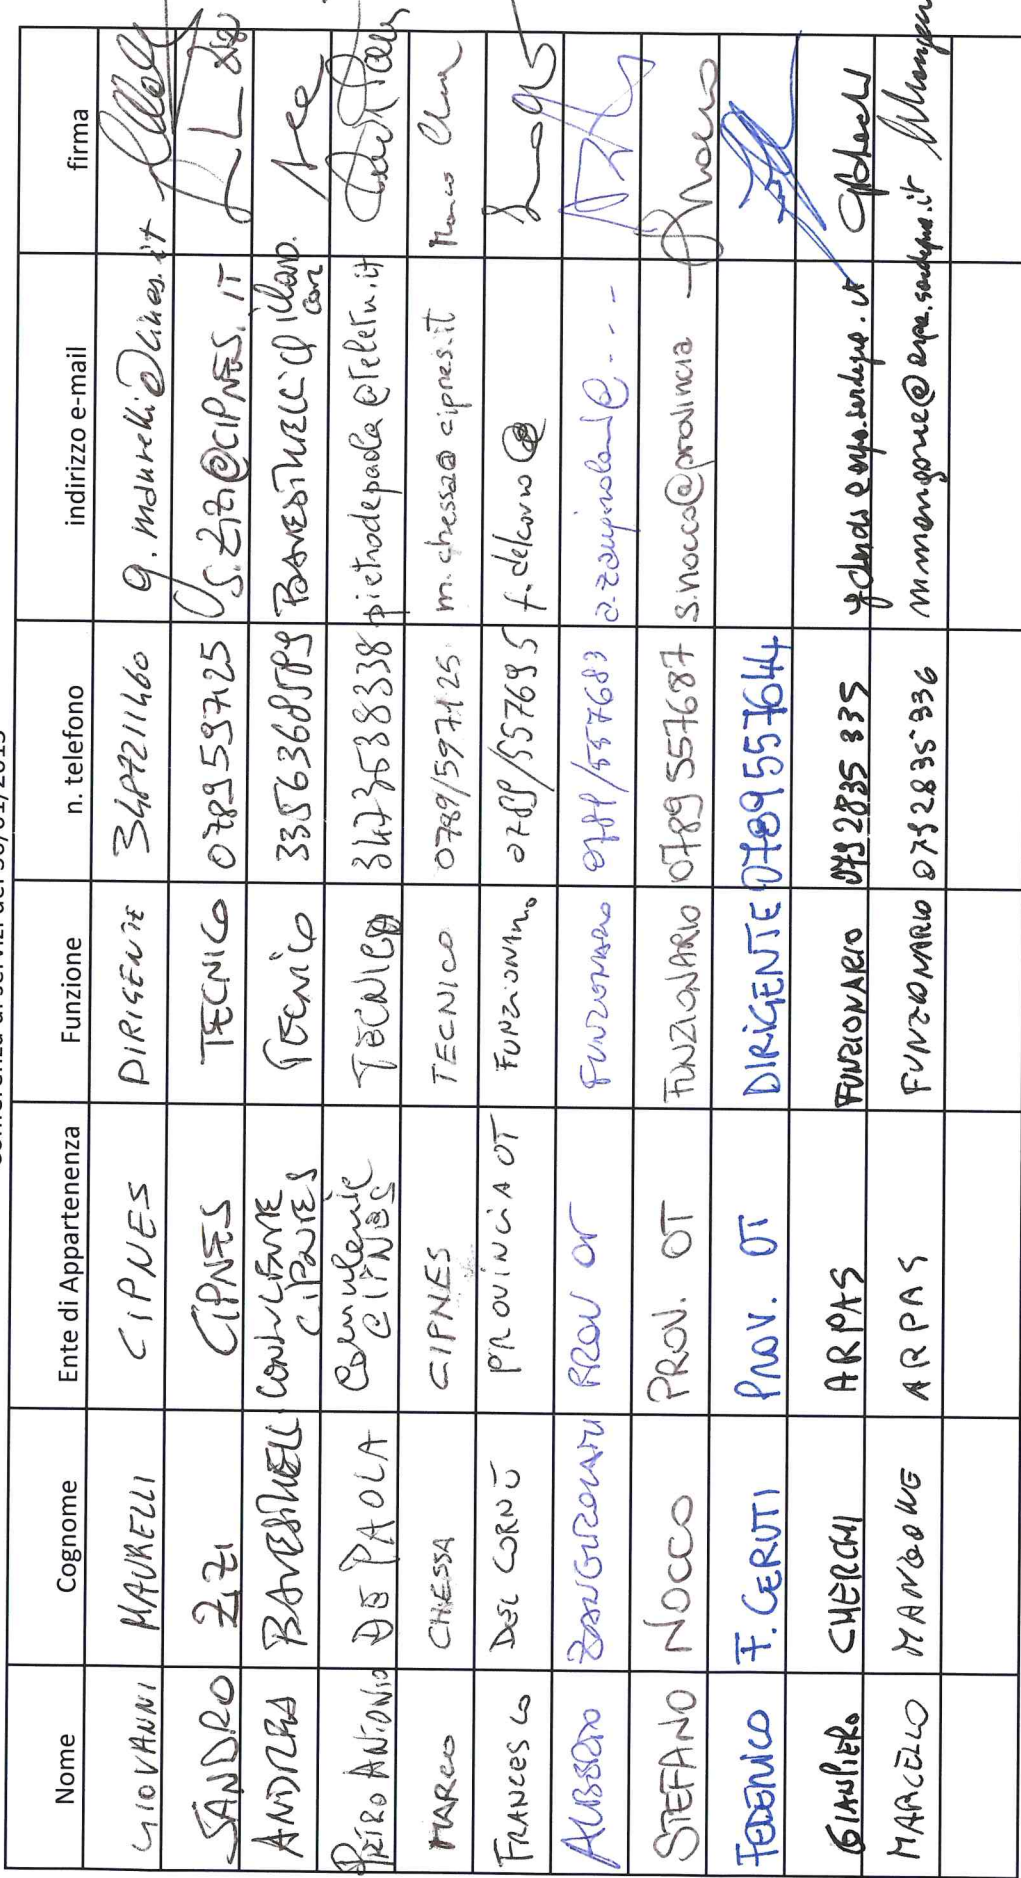 Nome Cognome Ente di Appartenenza Funzione n. telefono indirizzo e-mail firma
GIOVANNI MAURELLI CIPNES DIRIGENTE 3487211460
SANDRO ZIZI CIPNES TECNICO 0789597125 S.ZIZI@CIPNES.IT
ANDREA CONSULENTE CIPNES TECNICO 335636
PIETRO ANTONIO DE PAOLA Consulente CIPNES TECNICO 3473638338 pietrodepaola@teletu.it
MARCO CHESSA CIPNES TECNICO 0789/597125 m.chessa@cipnes.it Marco
FRANCESCO DEL CORNÒ PROVINCIA OT FUNZIONARIO 0789/557695 f.delcorno@
ALBERTO PROV OT FUNZIONARIO 0789/557683
STEFANO NOCCO PROV. OT FUNZIONARIO 0789557687 s.nocco@provincia
FEDERICO F. CERUTI PROV. OT DIRIGENTE 0789557644
GIANPIERO CHERCHI ARPAS FUNZIONARIO 0792835335
MARCELLO MANGONE ARPAS FUNZIONARIO 0792835336 mmangone@arpa.sardegna.it